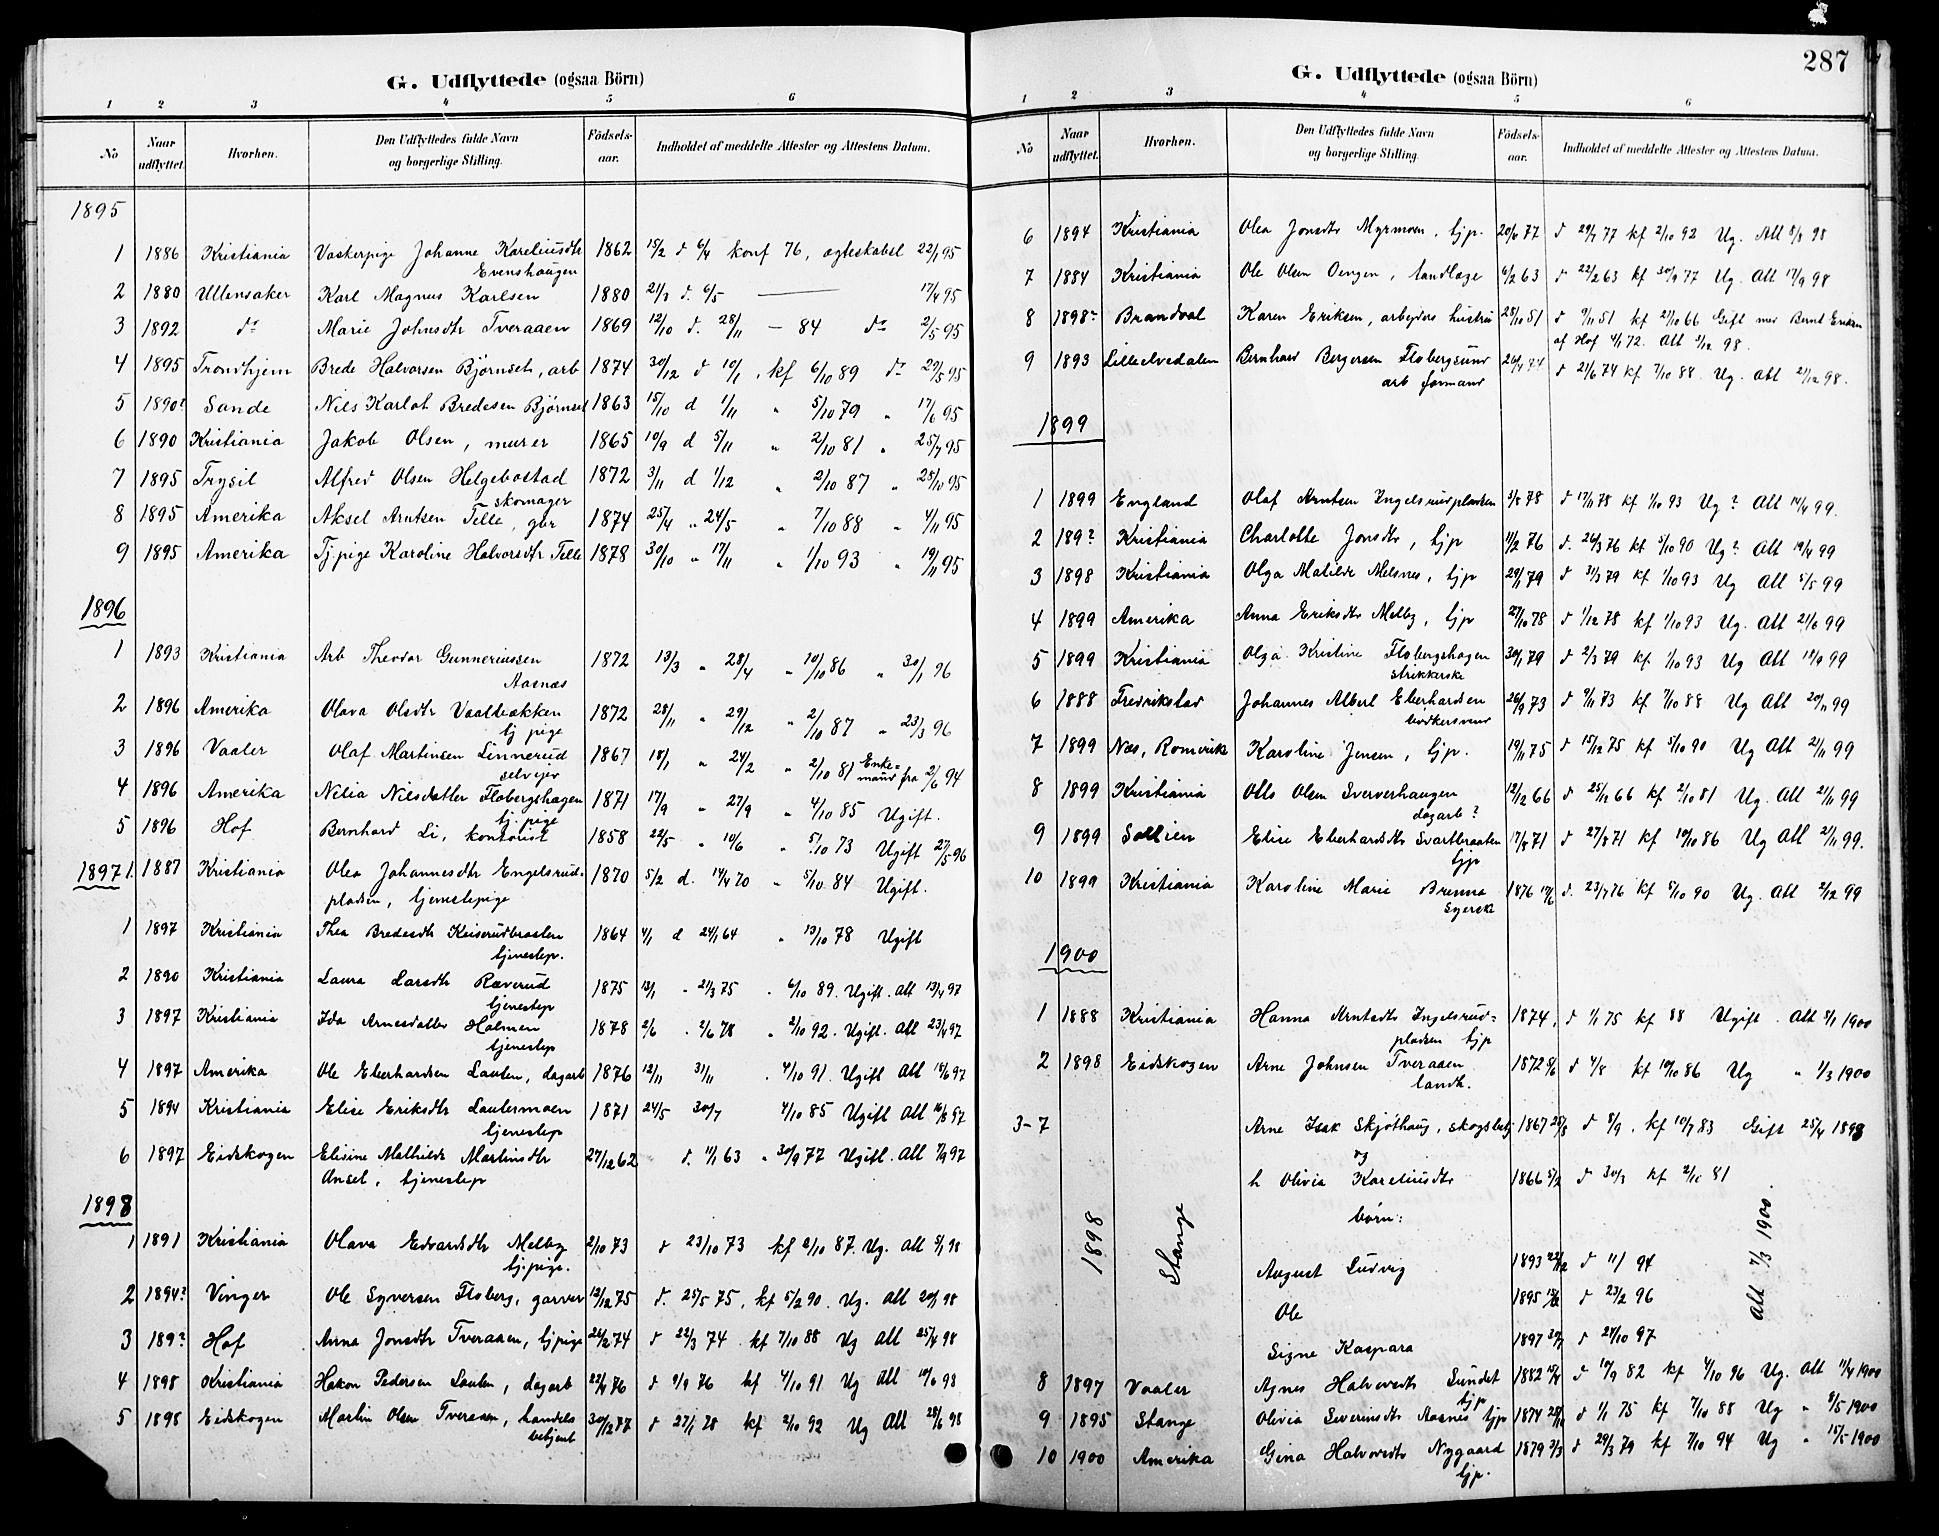 G. Udflyttede (ogsaa Börn)
1 2 3 4 5 6
No Naar udflyttet. Hvorhen. Den Udflyttedes fulde Navn og borgerlige Stilling. Födsels-aar. Indholdet af meddelte Attester og Attestens Datum.
1895
1 1886 Kristiania Vaskerpige Johanne Kareliusdtr 1862 15/2 d 6/4 konf 76, egteskabel 22/1 95
Evenshaugen
2 1880 Ullensaker Karl Magnus Karlsen 1880 21/3 d. 6/5 — 17/4 95
3 1892 do Marie Johnsdtr Tveraaen 1869 12/10 d. 28/11 — 84 do 2/5 95
4 1895 Trondhjem Brede Halvorsen Björnseth, arb 1874 30/12 d 10/1, kf 6/10 89 do 29/5 95
5 1890? Sande Nils Karlot Bredesen Björnset 1863 15/10 d 1/11 " 5/10 79 " 17/6 95
6 1890 Kristiania Jakob Olsen, murer 1865 10/9 d 5/11 " 2/10 81 " 25/7 95
7 1895 Trysil Alfred Olsen Helgebostad 1872 3/11 d 1/12 " 2/10 87 " 25/10 95
skomager
8 1895 Amerika Aksel Arntsen Telle, gbr 1874 25/4 " 24/5 " 7/10 88 " 4/11 95
9 1895 Amerika Tj.pige Karoline Halvorsdtr Telle 1878 30/10 " 17/11 " 1/10 93 " 19/11 95
1896
1 1893 Kristiania Arb Theodor Gunneriussen 1872 13/3 " 28/4 " 10/10 86 " 30/1 96
Aasnæs
2 1896 Amerika Olava Olsdtr Vaalbækken 1872 28/11 " 29/12 " 2/10 87 " 23/3 96
tj pige
3 1896 Vaaler Olaf Martinsen Linnerud 1867 18/1 " 24/2 " 2/10 81 Enke-mand fra 2/6 94
selvejer
4 1896 Amerika Nilia Nilsdatter Flobergshagen 1871 17/9 " 27/9 " 4/10 85 Ugift.
tj. pige
5 1896 Hof Bernhard Li, kontorist 1858 22/5 " 10/6 " 5/10 73 Ugift 27/5 96
1897 1. 1887 Kristiania Olea Johannesdtr Engelsrud- 1870 5/2 d. 17/4 70 " 5/10 84 Ugift.
pladsen, tjenestepige
1 1897 Kristiania Thea Bredesdtr Keiserudbraaten 1864 4/1 d 24/1 64 " 13/10 78 Ugift
tjenestep.
2 1890 Kristiania Laura Larsdtr Ræverud 1875 13/1 " 21/3 75 " 6/10 89. Ugift. Att 13/4 97
tjenestep
3 1897 Kristiania Ida Arnesdatter Holmen 1878 2/6 " 2/6 78 " 2/10 92. Ugift. Att 23/4 97
tjenestep
4 1897 Amerika Ole Eberhardsen Lauten, dagarb 1876 12/11 31/11 " 4/10 91. Ugift Att 18/6 97
5 1894 Kristiania Elise Eriksdtr Lautermoen 1871 24/5 30/7 4/10 85 Ugift Att 16/8 97
tjenestep
6 1897 Eidskogen Elisine Mathilde Martinsdtr 27/12 62 d. 11/1 63 " 30/9 77 Ugift. Att 7/9 97
Ansel, tjenestep
1898
1 1891 Kristiania Olava Edvardsdtr Melby 2/10 73 d 23/10 73 kf 2/10 87. Ug. Att 5/1 98
tj.pige.
2 1894? Vinger Ole Syversen Floberg, garver 12/12 75 d. 25/5 75, kf 5/2 90. Ug. Att 20/1 98
3 189? Hof Anna Jonsdtr Tveraaen, tjpige 26/2 74 d 22/3 74. kf 7/10 88 Ug Att 25/4 98
4 1898 Kristiania Hakon Pedersen Lauten, dagarb 22/4 76 d 9/9 76 kf 4/10 91 Ug Att 10/6 98
5 1898 Eidskogen Martin Olsen Tveraaen, handels 30/12 77 d 27/1 78 kf 2/10 92 Ug Att 28/6 98
betjent
287
G. Udflyttede (ogsaa Börn)
1 2 3 4 5 6
No Naar udflyttet. Hvorhen. Den Udflyttedes fulde Navn og borgerlige Stilling. Födsels-aar. Indholdet af meddelte Attester og Attestens Datum.
6 1894 Kristiania Olea Jonsdtr Myrmoen, tjp. 20/6 77 d 29/7 77 kf 2/10 92 Ug. Att 8/8 98
7 1884 Kristiania Ole Olsen Oengen, tandlæge 6/2 63 d 22/2 63 kf 30/9 77 Ug. Att 17/9 98
8 1898 Brandval Karen Eriksen, arbejders hustru 25/10 51 d 9/11 51 kf 21/10 66 Gift med Bernt Eriksen
af Hof 4/1 72. Att 1/12 98.
9 1893 Lilleelvedalen Bernhard Bergersen Flobergsund 26/4 74 d 21/6 74 kf 7/10 88. Ug. att 21/12 98.
arb formand
1899
1 1899 England Olaf Arntsen Ingelsrudpladsen 3/8 78 d 17/11 78 kf 1/10 93 Ug? Att 14/4 99.
2 189? Kristiania Charlotte Jonsdtr, tjp 11/2 76 d. 26/3 76 kf 5/10 90 Ug? Att 19/4 99
3 1898 Kristiania Olga Matilde Melsnes, tjp 29/1 79 d 31/3 79 kf 1/10 93 Ug Att 5/5 99
4 1899 Amerika Anna Eriksdtr Melby, tjp 27/10 78 d 1/12 78 kf 1/10 93 Ug. Att 21/6 99
5 1899 Kristiania Olga Kristine Flobergshagen 30/1 79 d 2/3 79 kf 1/10 93 Ug Att 18/9 99
strikkerske
6 1888 Fredrikstad Johannes Albert Eberhardsen 26/9 73 d 9/11 73 kf 7/10 88 Ug Att 20/11 99
bødkersvend
7 1899 Næs, Romerik Karoline Jensen, tjp. 19/11 75 d 15/12 75 kf 5/10 90 Ug Att 21/11 99
8 1899 Kristiania Olls Olsen Sververhaugen 12/12 66 d 25/12 66 kf 2/10 81 Ug. Att 21/11 99
dagarb?
9 1899 Sollien Elise Eberhardsdtr Svartbraaten 17/8 71 d 27/8 71 kf 10/10 86 Ug Att 21/11 99.
tjp
10 1899 Kristiania Karoline Marie Brenna 1876 17/6 d. 23/7 76 kf 5/10 90 Ug. Att 2/12 99
Syersk
1900
1 1888 Kristiania Hanna Arntsdtr Ingelsrud- 1874, d 1/1 75 kf 88 Ugift. Att 5/1 1900
pladsen tjp
2 1898 Eidskogen Arne Johnsen Tveraaen 1872 6/6 d 4/8 kf 10/10 86 Ug " 1/3 1900
landh.
3-7 Arne Isak Skjöthaug, skogsbetj 1867 25/8 d 8/9. kf 10/7 83 Gift 25/4 1893
og
h Olivia Kareliusdtr 1866 5/2 d 30/3 kf 2/10 81
1898 Stange börn: Att 7/3 1900.
August Ludvig 1893 22/12 d 11/1 94
Ole 1895 13/12 d 23/2 96
Signe Kaspara 1897 30/7 d 24/10 97
8 1897 Vaaler Agnes Halvorsdtr Sundet 1882 15/4 d 10/9 82 kf 4/10 96 Ug. Att 11/4 1900
tjp
9 1895 Stange Olivia Severinsdtr Aasnes tjp 1874 28/11 d 1/1 75 kf 7/10 88 Ug " 8/5 1900
10 1900 Amerika Gina Halvorsdtr Nygaard 1879 3/3 d 29/3 79 kf 7/10 94 Ug " 15/5 1900
tjp.